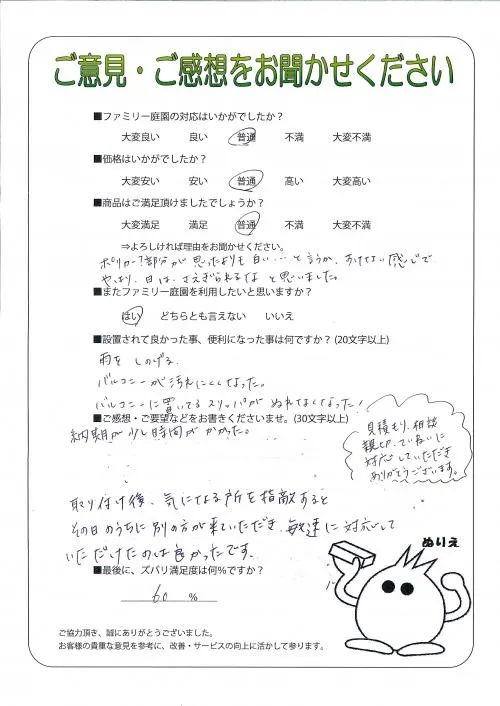 ご意見・ご感想をお聞かせください
■ファミリー庭園の対応はいかがでしたか？
大変良い 良い 普通 不満 大変不満
■価格はいかがでしたか？
大変安い 安い 普通 高い 大変高い
■商品はご満足頂けましたでしょうか？
大変満足 満足 普通 不満 大変不満
⇒よろしければ理由をお聞かせください。
ポリカー?部分が思ったよりも白い…と言うか、すけない感じで
やっぱり、日は、さえぎられるなと思いました。
■またファミリー庭園を利用したいと思いますか？
はい どちらとも言えない いいえ
■設置されて良かった事、便利になった事は何ですか？(20文字以上)
雨をしのげる。
バルコニーが汚れにくくなった。
バルコニーに置いてるスリッパがぬれてなくなった！
■ご感想・ご要望などをお書きくださいませ。(30文字以上)
納期が少し時間がかかった。
見積もり、相談
親切、ていねいに
対応していただき
ありがとうございます。
取り付け後、気になる所を指敵すると
その日のうちに別の方が来ていただき、敏速に対応して
いただけたのは良かったです。
■最後に、ズバリ満足度は何％ですか？
60 %
ぬりえ
ご協力頂き、誠にありがとうございました。
お客様の貴重な意見を参考に、改善・サービスの向上に活かして参ります。